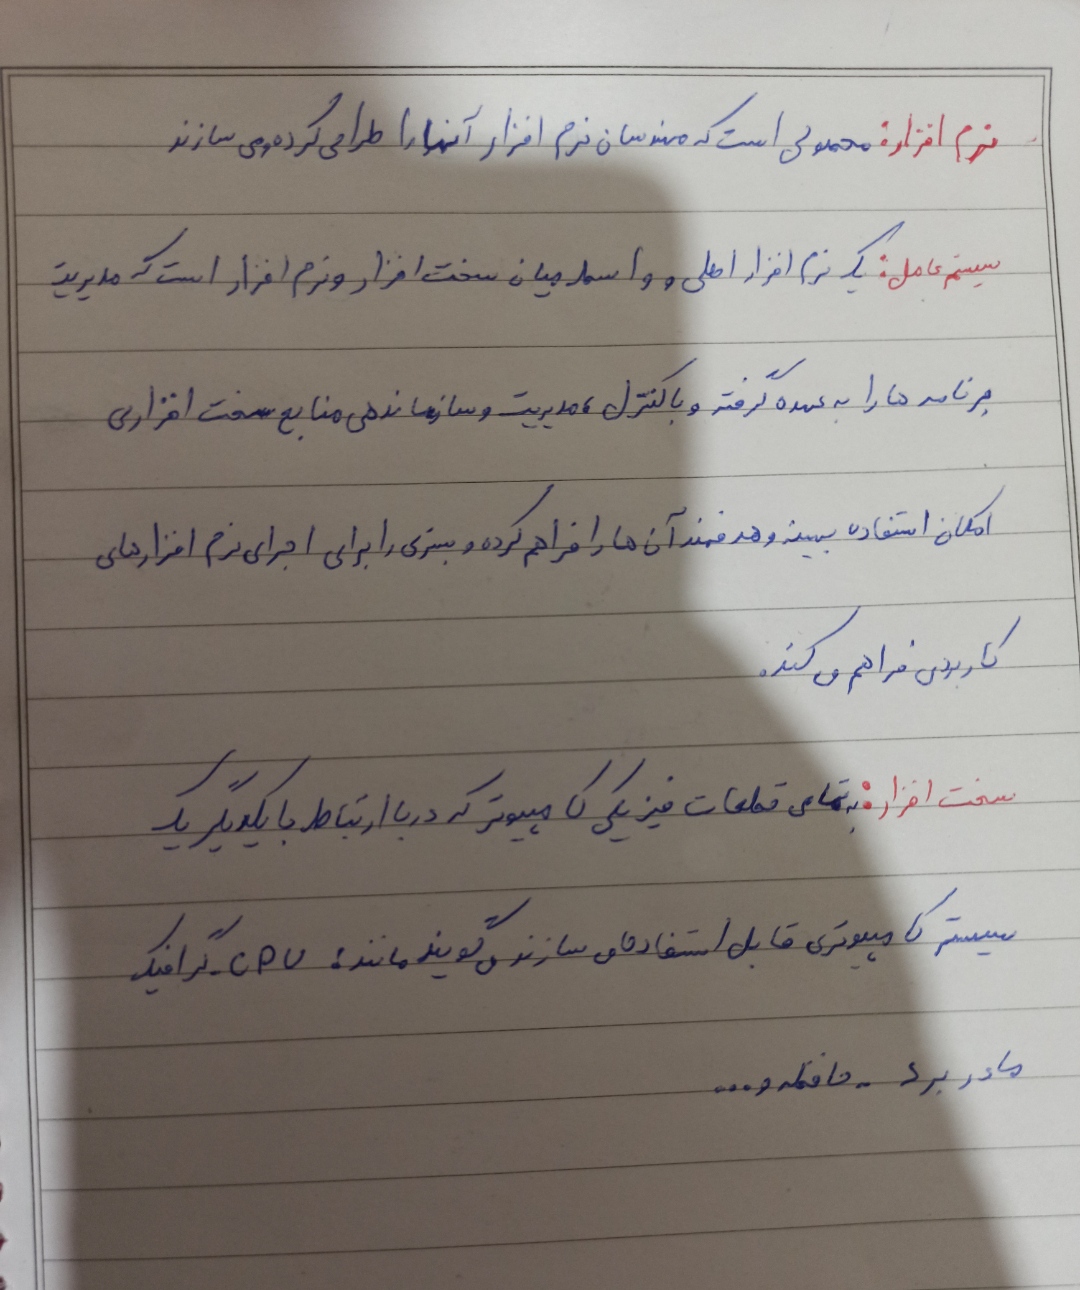 نرم افزار: محصولی است که مهندسان نرم افزار آنها را طراحی کرده و می سازند
سیستم عامل: یک نرم افزار اصلی و واسط میان سخت افزار و نرم افزار است که مدیریت
برنامه ها را به عهده گرفته و با کنترل، مدیریت و سازماندهی منابع سخت افزاری
امکان استفاده بهینه و هدفمند آن ها را فراهم کرده و بستری را برای اجرای نرم افزارهای
کاربردی فراهم می کند.
سخت افزار: به تمامی قطعات فیزیکی کامپیوتر که در با ارتباط با یکدیگر یک
سیستم کامپیوتری قابل استفاده می سازند می گویند مانند: CPU - گرافیک
مادر برد - حافظه و ...